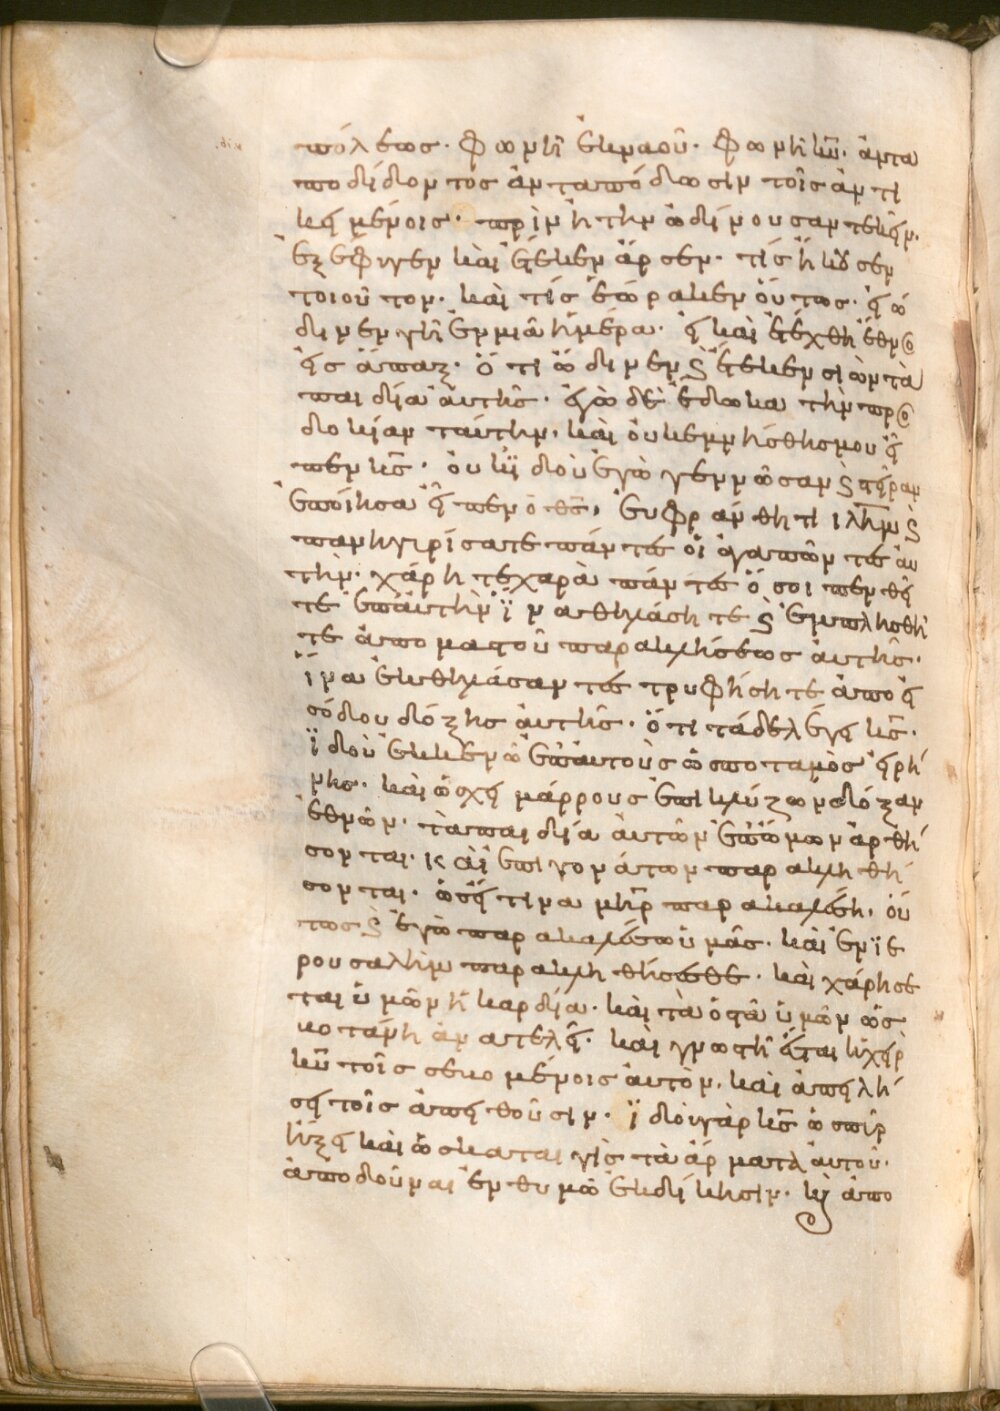 πόλεως· φωνὴ ἐκ ναοῦ· φωνὴ κῦ· ἀντα
ποδίδοντος ἀνταπόδωσιν τοῖς ἀντι
κειμένοις· πρὶν ἢ τὴν ὠδίνουσαν τεκεῖν·
ἐξέφυγεν καὶ ἔτεκεν ἄρσεν· τίς ἤκουσεν
τοιοῦτον· καὶ τίς ἑώρακεν οὕτως· εἰ ὤ
δινεν γῆ ἐν μιᾶ ἡμέρα· εἰ καὶ ἐτέχθη ἔθνο
εἰς ἅπαξ· ὅτι ὤδινεν ϛ ἔτεκεν σιὼν τὰ
παιδία αὐτῆς· ἐγὼ δὲ ἔδωκα τὴν προ
δοκίαν ταύτην· καὶ οὐκ ἐμνήσθης μου εἶ
πεν κς· οὐκ ἰδοὺ ἐγὼ γεννῶσαν ϛ στεῖραν
ἐποίησα εἶπεν ὁ θς, εὐφράνθητι ιλημ ϛ
πανηγιρίσατε πάντες οἱ ἀγαπῶντες αὐ
τήν· χάρητε χαρὰ πάντες ὅσοι πενθεῖ
τε ἐπ αὐτὴν ἵνα θηλάσητε ϛ ἐμπλησθῆ
τε ἀπο μαστοῦ παρακλήσεως αὐτῆς·
ἵνα ἐκθηλάσαντες τρυφήσητε ἀπο εἰ
σόδου δόξης αὐτῆς· ὅτι τάδε λέγει κς·
ἰδοὺ ἐκκενῶ ἐπ αὐτοὺς ὡς ποταμὸς εἰρή
νης· καὶ ὡς χειμάρρους ἐπικλύζων δόξαν
ἐθνῶν· τὰ παιδία αὐτῶν ἐπ ὤμων ἀρθή
σονται· καὶ ἐπι γονάτων παρακληθή
σονται· ὡς εἴ τινα μηρ παρακαλέση, οὕ
τως ϛ ἐγὼ παρακαλέσω ὑμᾶς· καὶ ἐν ϊε
ρουσαλὴμ παρακληθήσεσθε· καὶ χάρησε
ται ὑμῶν ἡ καρδία· καὶ τὰ ὀστᾶ ὑμῶν ὡς
βοτάνη ἀνατελεῖ· καὶ γνωστὴ ἔσται ἡ χεὶρ
κῦ τοῖς σεβομένοις αὐτὸν, καὶ ἀπειλή
σει τοῖς ἀπειθοῦσιν· ϊδοὺ γὰρ κς ὡς πῦρ
ἥξει καὶ ὡς καταιγὶς τὰ ἅρματα αὐτοῦ·
ἀποδοῦναι ἐν θυμῶ ἐκδίκησιν· κ(αὶ) ἀπο